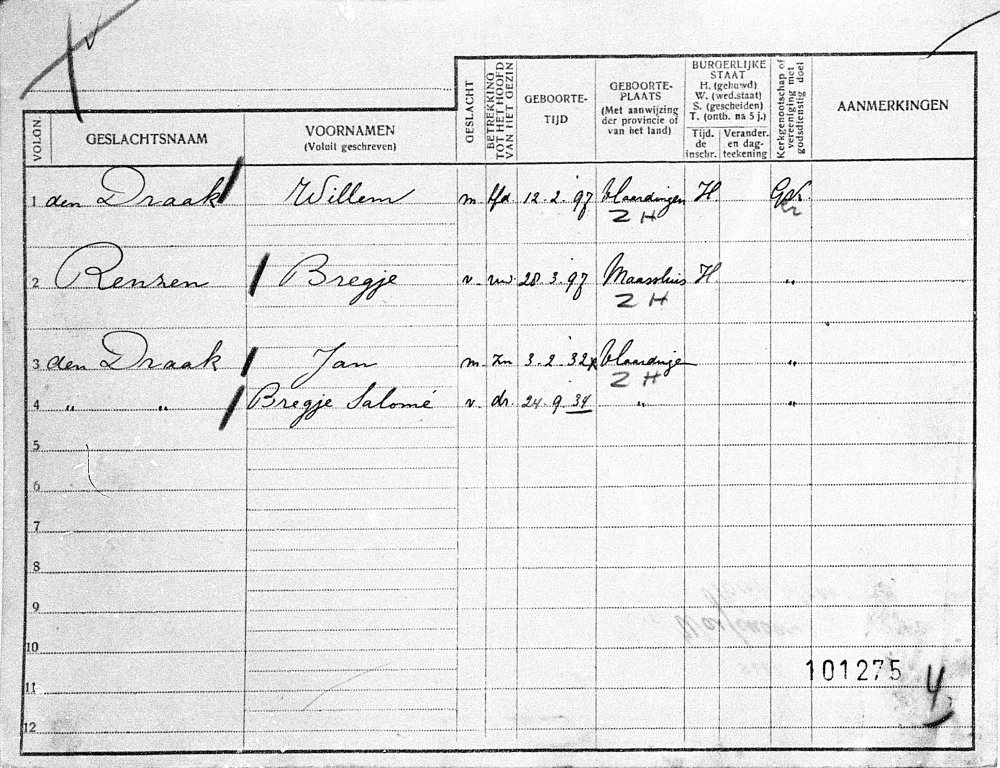 VOLGN.
GESLACHTSNAAM
VOORNAMEN
(Voluit geschreven)
GESLACHT
BETREKKING
TOT HET HOOFD
VAN HET GEZIN
GEBOORTE-
TIJD
GEBOORTE-
PLAATS
(Met aanwijzing
der provincie of
van het land)
BURGERLIJKE
STAAT
H. (gehuwd)
W. (wed.staat)
S. (gescheiden)
T. (ontb. na 5 j.)
Tijd.
de
inschr.
Verander.
en dag-
teekening
Kerkgenootschap of
vereeniging met
godsdienstig doel
AANMERKINGEN
1 den Draak Willem m. hfd. 12.2.97 Vlaardingen H.
Z H
2 Renzen Bregje v. vw 28.3.97 Maassluis H. "
Z H
3 den Draak Jan m. zn 3.2.32 Vlaardingen "
Z H
4 " " Bregje Salomé v. dr. 24.9.34 " "
5
6
7
8
9
10
11
12
101275
4